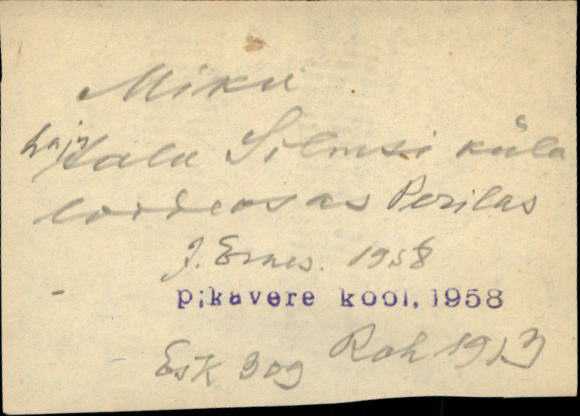 Miku
talu Silmsi küla
loodeosas Perilas
J. Ernes. 1958
pikavere kool, 1958
Esk 309 Roh 1913